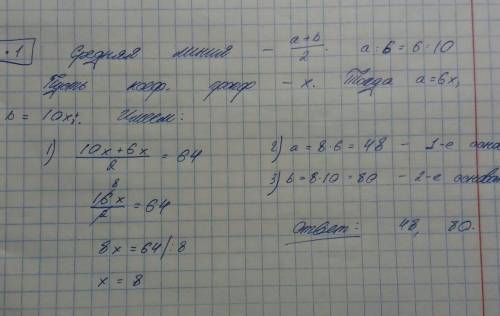 .1 Средняя линия – a+b/2. a:b=6:10
Пусть коэф. – x. Тогда a=6x,
b = 10x. Имеем:
1) 10x+6x/2 = 64
16x/2 = 64
8
8x = 64 |:8
x = 8
2) a = 8·6 = 48 – 1-е осно
3) b = 8·10 = 80 – 2-е основа
Ответ: 48, 80.